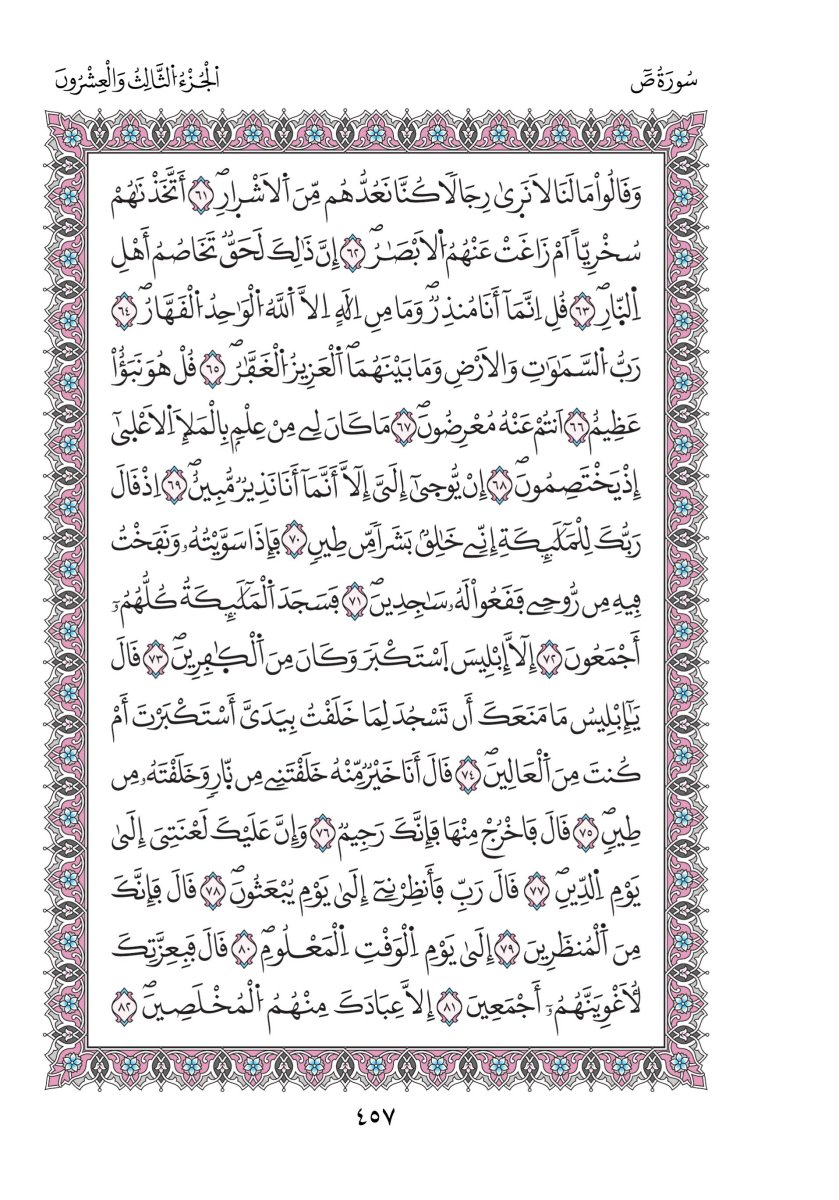 سُورَةُ صٓ
اَلْجُزْءُ الثَّالِثُ وَالْعِشْرُونَ
وَقَالُواْ مَا لَنَا لَا نَرٜىٰ رِجَالاٗ كُنَّا نَعُدُّهُم مِّنَ اَلَاشْرٜارِۖ ٦١ أَتَّخَذْنَٰهُمْ
سُخْرِيّاً اَمْ زَاغَتْ عَنْهُمُ اُلَابْصَٰرُۖ ٦٢ إِنَّ ذَٰلِكَ لَحَقّٞ تَخَاصُمُ أَهْلِ
اِلنّٜارِۖ ٦٣ قُلِ اِنَّمَآ أَنَا مُنذِرٞۖ وَمَا مِنِ اِلَٰهٍ اِلَّا اَللَّهُ اُلْوَٰحِدُ اُلْقَهَّارُۖ ٦٤
رَبُّ اُلسَّمَٰوَٰتِ وَالَارْضِ وَمَا بَيْنَهُمَاۖ اَلْعَزِيزُ اُلْغَفَّٰرُۖ ٦٥ قُلْ هُوَ نَبَؤٌاْ
عَظِيمٌ ٦٦ اَنتُمْ عَنْهُ مُعْرِضُونَۖ ٦٧ مَا كَانَ لِے مِنْ عِلْمِۢ بِالْمَلَإِ اِلَاعْلٜىٰٓ
إِذْ يَخْتَصِمُونَۖ ٦٨ إِنْ يُّوحٜىٰٓ إِلَيَّ إِلَّآ أَنَّمَآ أَنَا نَذِيرٞ مُّبِينٌۖ ٦٩ اِذْ قَالَ
رَبُّكَ لِلْمَلَٰٓئِكَةِ إِنِّے خَٰلِقُۢ بَشَراٗ مِّن طِينٖ ٧٠ فَإِذَا سَوَّيْتُهُۥ وَنَفَخْتُ
فِيهِ مِن رُّوحِے فَقَعُواْ لَهُۥ سَٰجِدِينَۖ ٧١ فَسَجَدَ اَلْمَلَٰٓئِكَةُ كُلُّهُمُۥٓ
أَجْمَعُونَ ٧٢ إِلَّآ إِبْلِيسَ اَسْتَكْبَرَ وَكَانَ مِنَ اَلْكٰٜفِرِينَۖ ٧٣ قَالَ
يَٰٓإِبْلِيسُ مَا مَنَعَكَ أَن تَسْجُدَ لِمَا خَلَقْتُ بِيَدَيَّ أَسْتَكْبَرْتَ أَمْ
كُنتَ مِنَ اَلْعَالِينَۖ ٧٤ قَالَ أَنَا خَيْرٞ مِّنْهُ خَلَقْتَنِے مِن نّٜارٖ وَخَلَقْتَهُۥ مِن
طِينٖۖ ٧٥ قَالَ فَاخْرُجْ مِنْهَا فَإِنَّكَ رَجِيمٞ ٧٦ وَإِنَّ عَلَيْكَ لَعْنَتِيَ إِلَىٰ
يَوْمِ اِلدِّينِۖ ٧٧ قَالَ رَبِّ فَأَنظِرْنِےٓ إِلَىٰ يَوْمِ يُبْعَثُونَۖ ٧٨ قَالَ فَإِنَّكَ
مِنَ اَلْمُنظَرِينَ ٧٩ إِلَىٰ يَوْمِ اِلْوَقْتِ اِلْمَعْلُومِۖ ٨٠ قَالَ فَبِعِزَّتِكَ
لَأُغْوِيَنَّهُمُۥٓ أَجْمَعِينَ ٨١ إِلَّا عِبَادَكَ مِنْهُمُ اُلْمُخْلَصِينَۖ ٨٢
٤٥٧